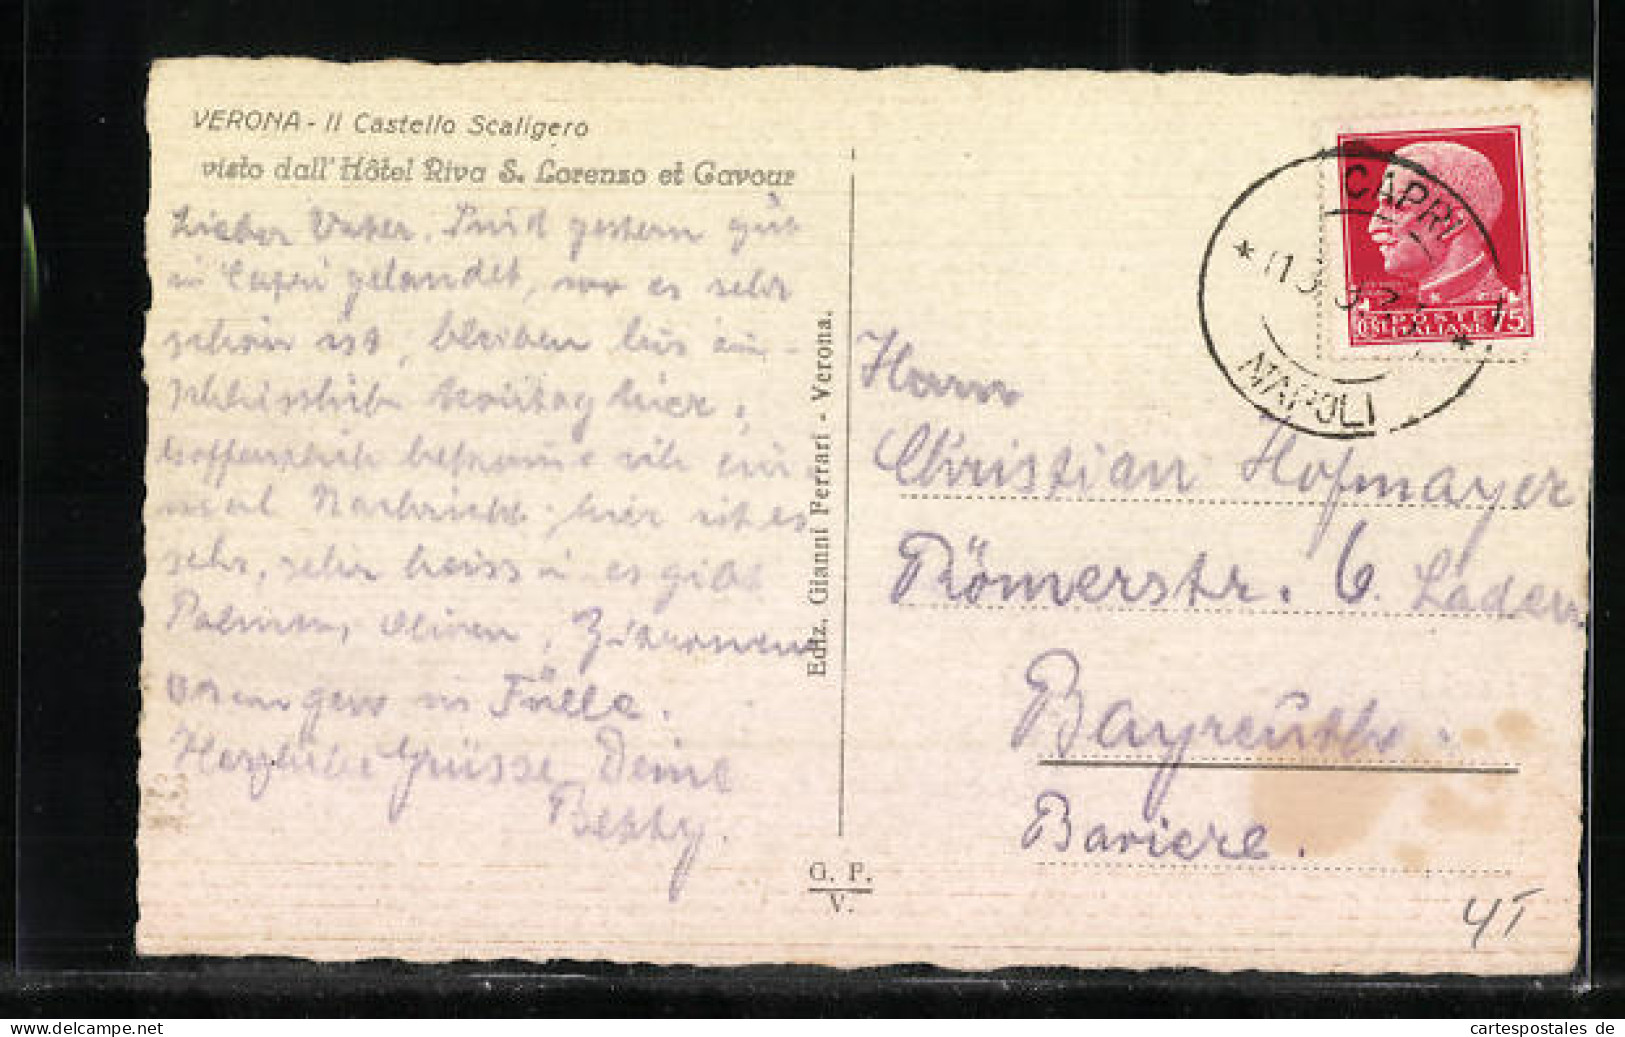 VERONA - Il Castello Scaligero
visto dall' Hôtel Riva S. Lorenzo et Cavour
Lieber Vater. Sind gestern gut
in Capri gelandet, wo es sehr
schön ist, bleiben bis ein-
schliesslich Montag hier,
hoffentlich bekomme ich ein-
mal Nachricht. hier ist es
sehr, sehr heiss u. es gibt
Palmen, Oliven, Zitronen
orangen in Fülle.
Herzliche Grüsse Deine
Betty.
Ediz. Gianni Ferrari - Verona.
G. F.
V.
CAPRI
NAPOLI
POSTE
ITALIANE
75
Herrn
Christian Hofmayer
Römerstr. 6. Laden
Bayreuth.
Baviere.
4T
delcampe.net
cartespostales de